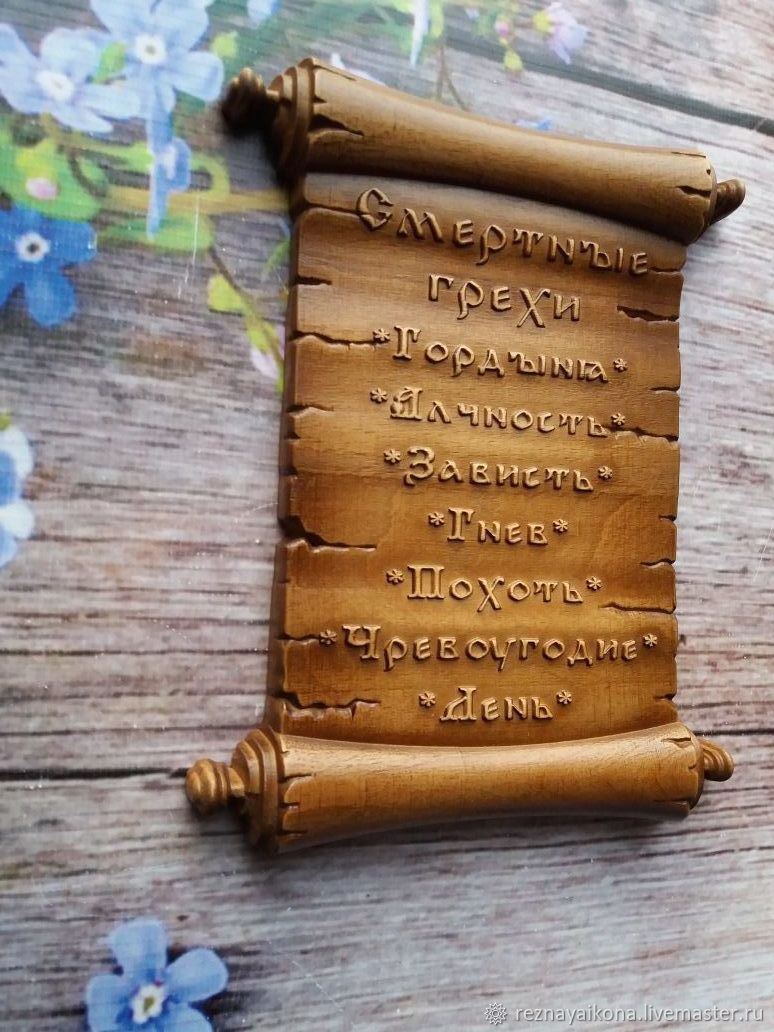 Смертные
грехи
*Гордыня*
*Алчность*
*Зависть*
*Гнев*
*Похоть*
*Чревоугодие*
*Лень*
reznayaikona.livemaster.ru